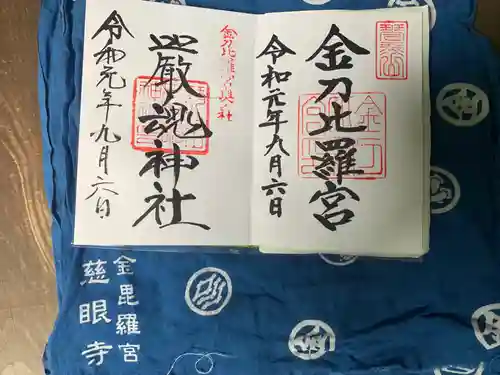 金刀比羅宮
令和元年九月六日
金刀比羅宮奥社
厳魂神社
令和元年九月六日
金毘羅宮
慈眼寺